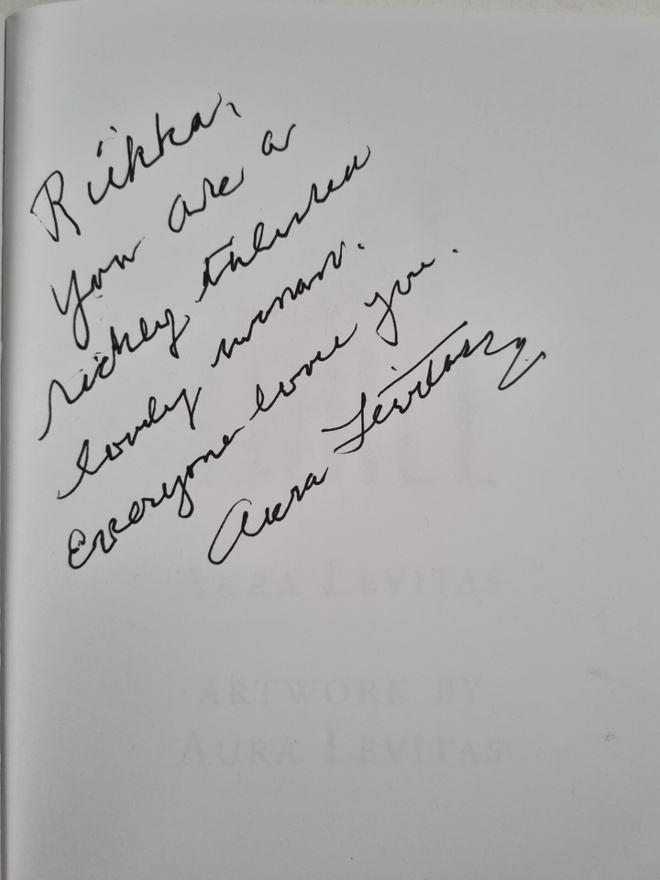 Riikka,
You are a
richly talented
lovely woman.
Everyone loves you.
Aura Levitas
AURA LEVITAS
ARTWORK BY
AURA LEVITAS